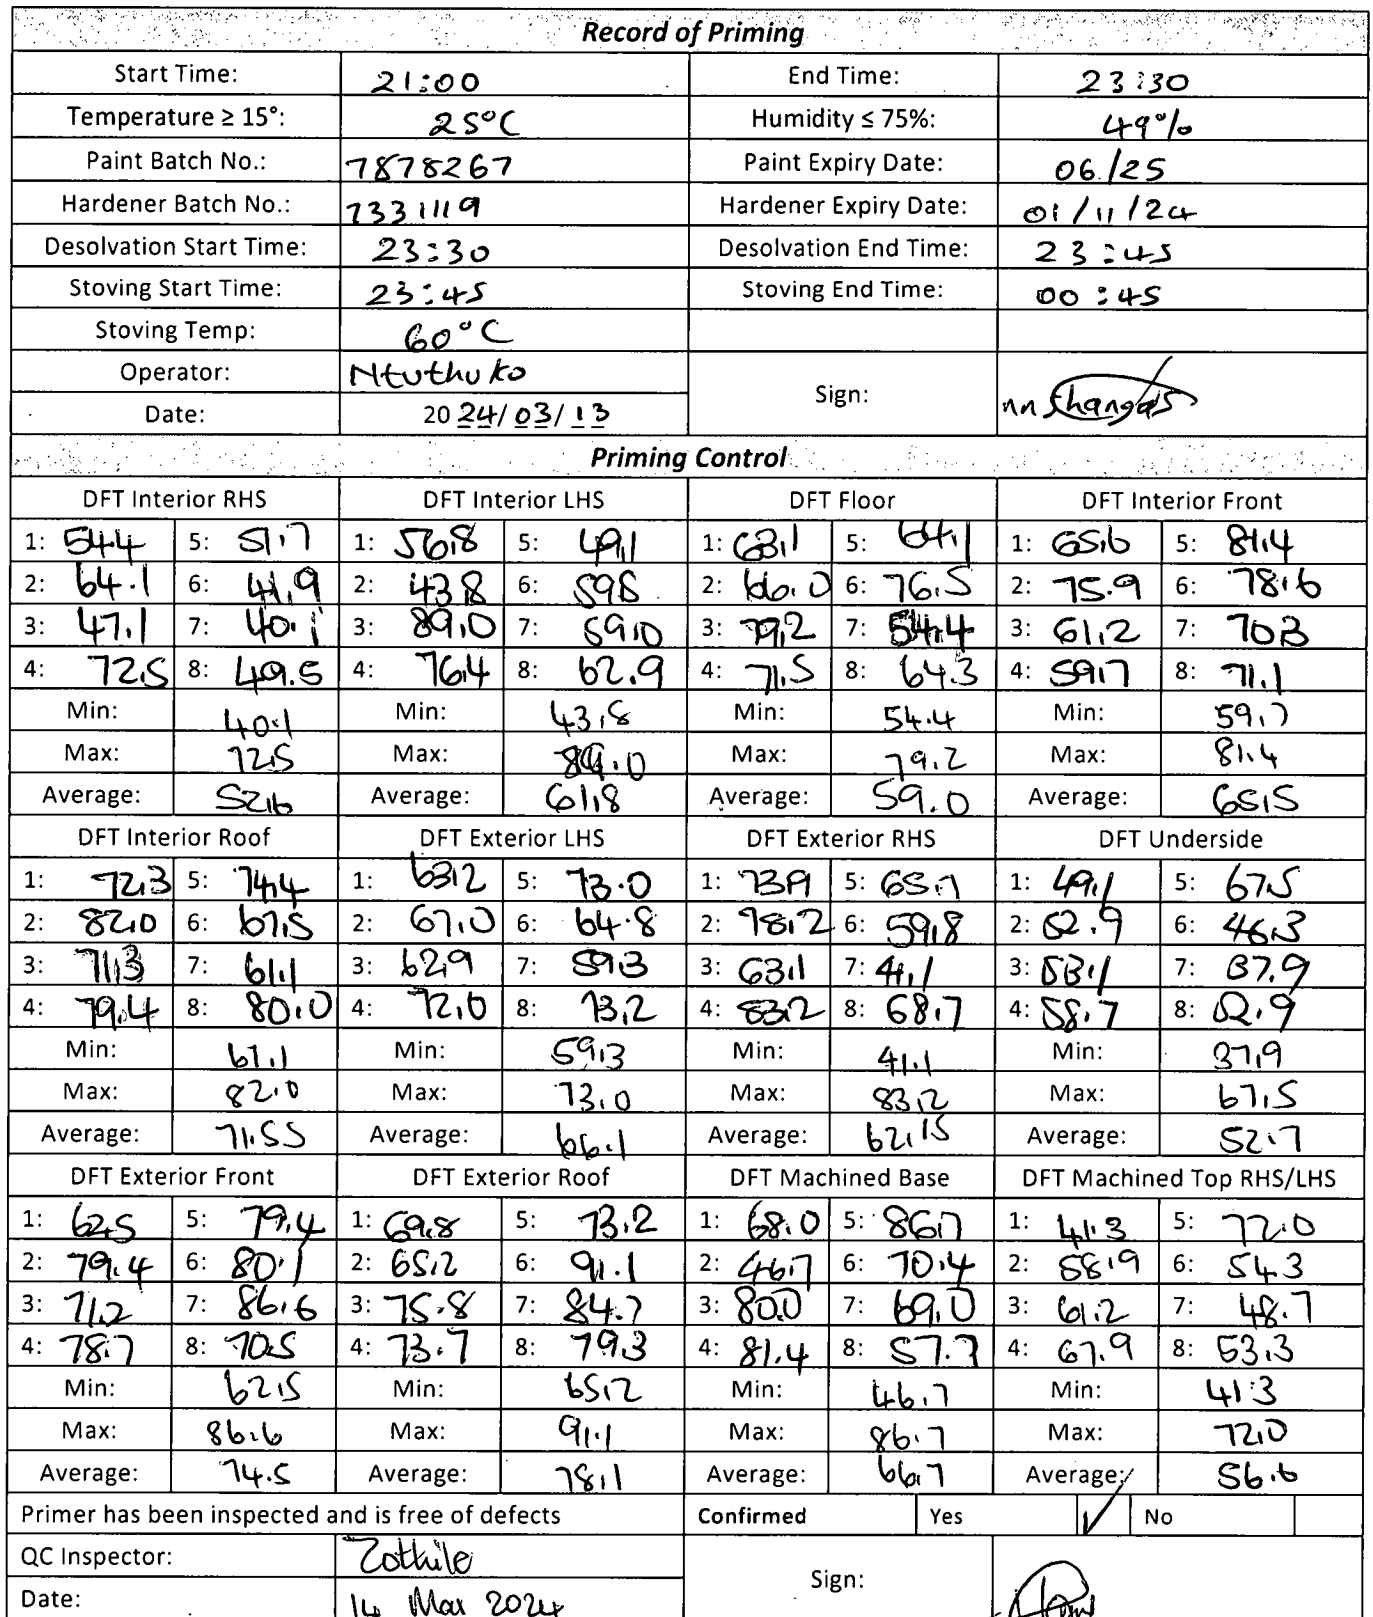 Record of Priming
Start Time: 21:00 End Time: 23:30
Temperature ≥ 15°: 25°C Humidity ≤ 75%: 49%
Paint Batch No.: 7878267 Paint Expiry Date: 06/25
Hardener Batch No.: 7331119 Hardener Expiry Date: 01/11/24
Desolvation Start Time: 23:30 Desolvation End Time: 23:45
Stoving Start Time: 23:45 Stoving End Time: 00:45
Stoving Temp: 60°C
Operator: Ntuthuko
Sign: nn Shangas
Date: 2024/03/13
Priming Control
DFT Interior RHS DFT Interior LHS DFT Floor DFT Interior Front
1: 54.4 5: 51.7 1: 56.8 5: 49.1 1: 63.1 5: 64.1 1: 65.6 5: 81.4
2: 64.1 6: 41.9 2: 43.8 6: 59.8 2: 66.0 6: 76.5 2: 75.9 6: 78.6
3: 47.1 7: 40.1 3: 89.0 7: 59.0 3: 79.2 7: 54.4 3: 61.2 7: 70.3
4: 72.5 8: 49.5 4: 76.4 8: 62.9 4: 71.5 8: 64.3 4: 59.7 8: 71.1
Min: 40.1 Min: 43.8 Min: 54.4 Min: 59.7
Max: 72.5 Max: 89.0 Max: 79.2 Max: 81.4
Average: 52.6 Average: 61.8 Average: 59.0 Average: 65.5
DFT Interior Roof DFT Exterior LHS DFT Exterior RHS DFT Underside
1: 72.3 5: 74.4 1: 63.2 5: 73.0 1: 73.9 5: 65.7 1: 49.1 5: 67.5
2: 82.0 6: 67.5 2: 67.0 6: 64.8 2: 78.2 6: 59.8 2: 52.9 6: 46.3
3: 71.3 7: 61.1 3: 62.9 7: 59.3 3: 63.1 7: 41.1 3: 53.1 7: 37.9
4: 79.4 8: 80.0 4: 72.0 8: 73.2 4: 83.2 8: 68.7 4: 58.7 8: 52.9
Min: 61.1 Min: 59.3 Min: 41.1 Min: 37.9
Max: 82.0 Max: 73.0 Max: 83.2 Max: 67.5
Average: 71.55 Average: 66.1 Average: 62.15 Average: 52.7
DFT Exterior Front DFT Exterior Roof DFT Machined Base DFT Machined Top RHS/LHS
1: 62.5 5: 79.4 1: 69.8 5: 73.2 1: 68.0 5: 86.7 1: 41.3 5: 72.0
2: 79.4 6: 80.1 2: 65.2 6: 91.1 2: 46.7 6: 70.4 2: 58.9 6: 54.3
3: 71.2 7: 86.6 3: 75.8 7: 84.7 3: 80.0 7: 69.0 3: 61.2 7: 48.7
4: 78.7 8: 70.5 4: 73.7 8: 79.3 4: 81.4 8: 57.7 4: 67.9 8: 53.3
Min: 62.5 Min: 65.2 Min: 46.7 Min: 41.3
Max: 86.6 Max: 91.1 Max: 86.7 Max: 72.0
Average: 74.5 Average: 78.1 Average: 66.7 Average: 56.6
Primer has been inspected and is free of defects Confirmed Yes ✓ No
QC Inspector: Zothile
Sign:
Date: 14 Mar 2024